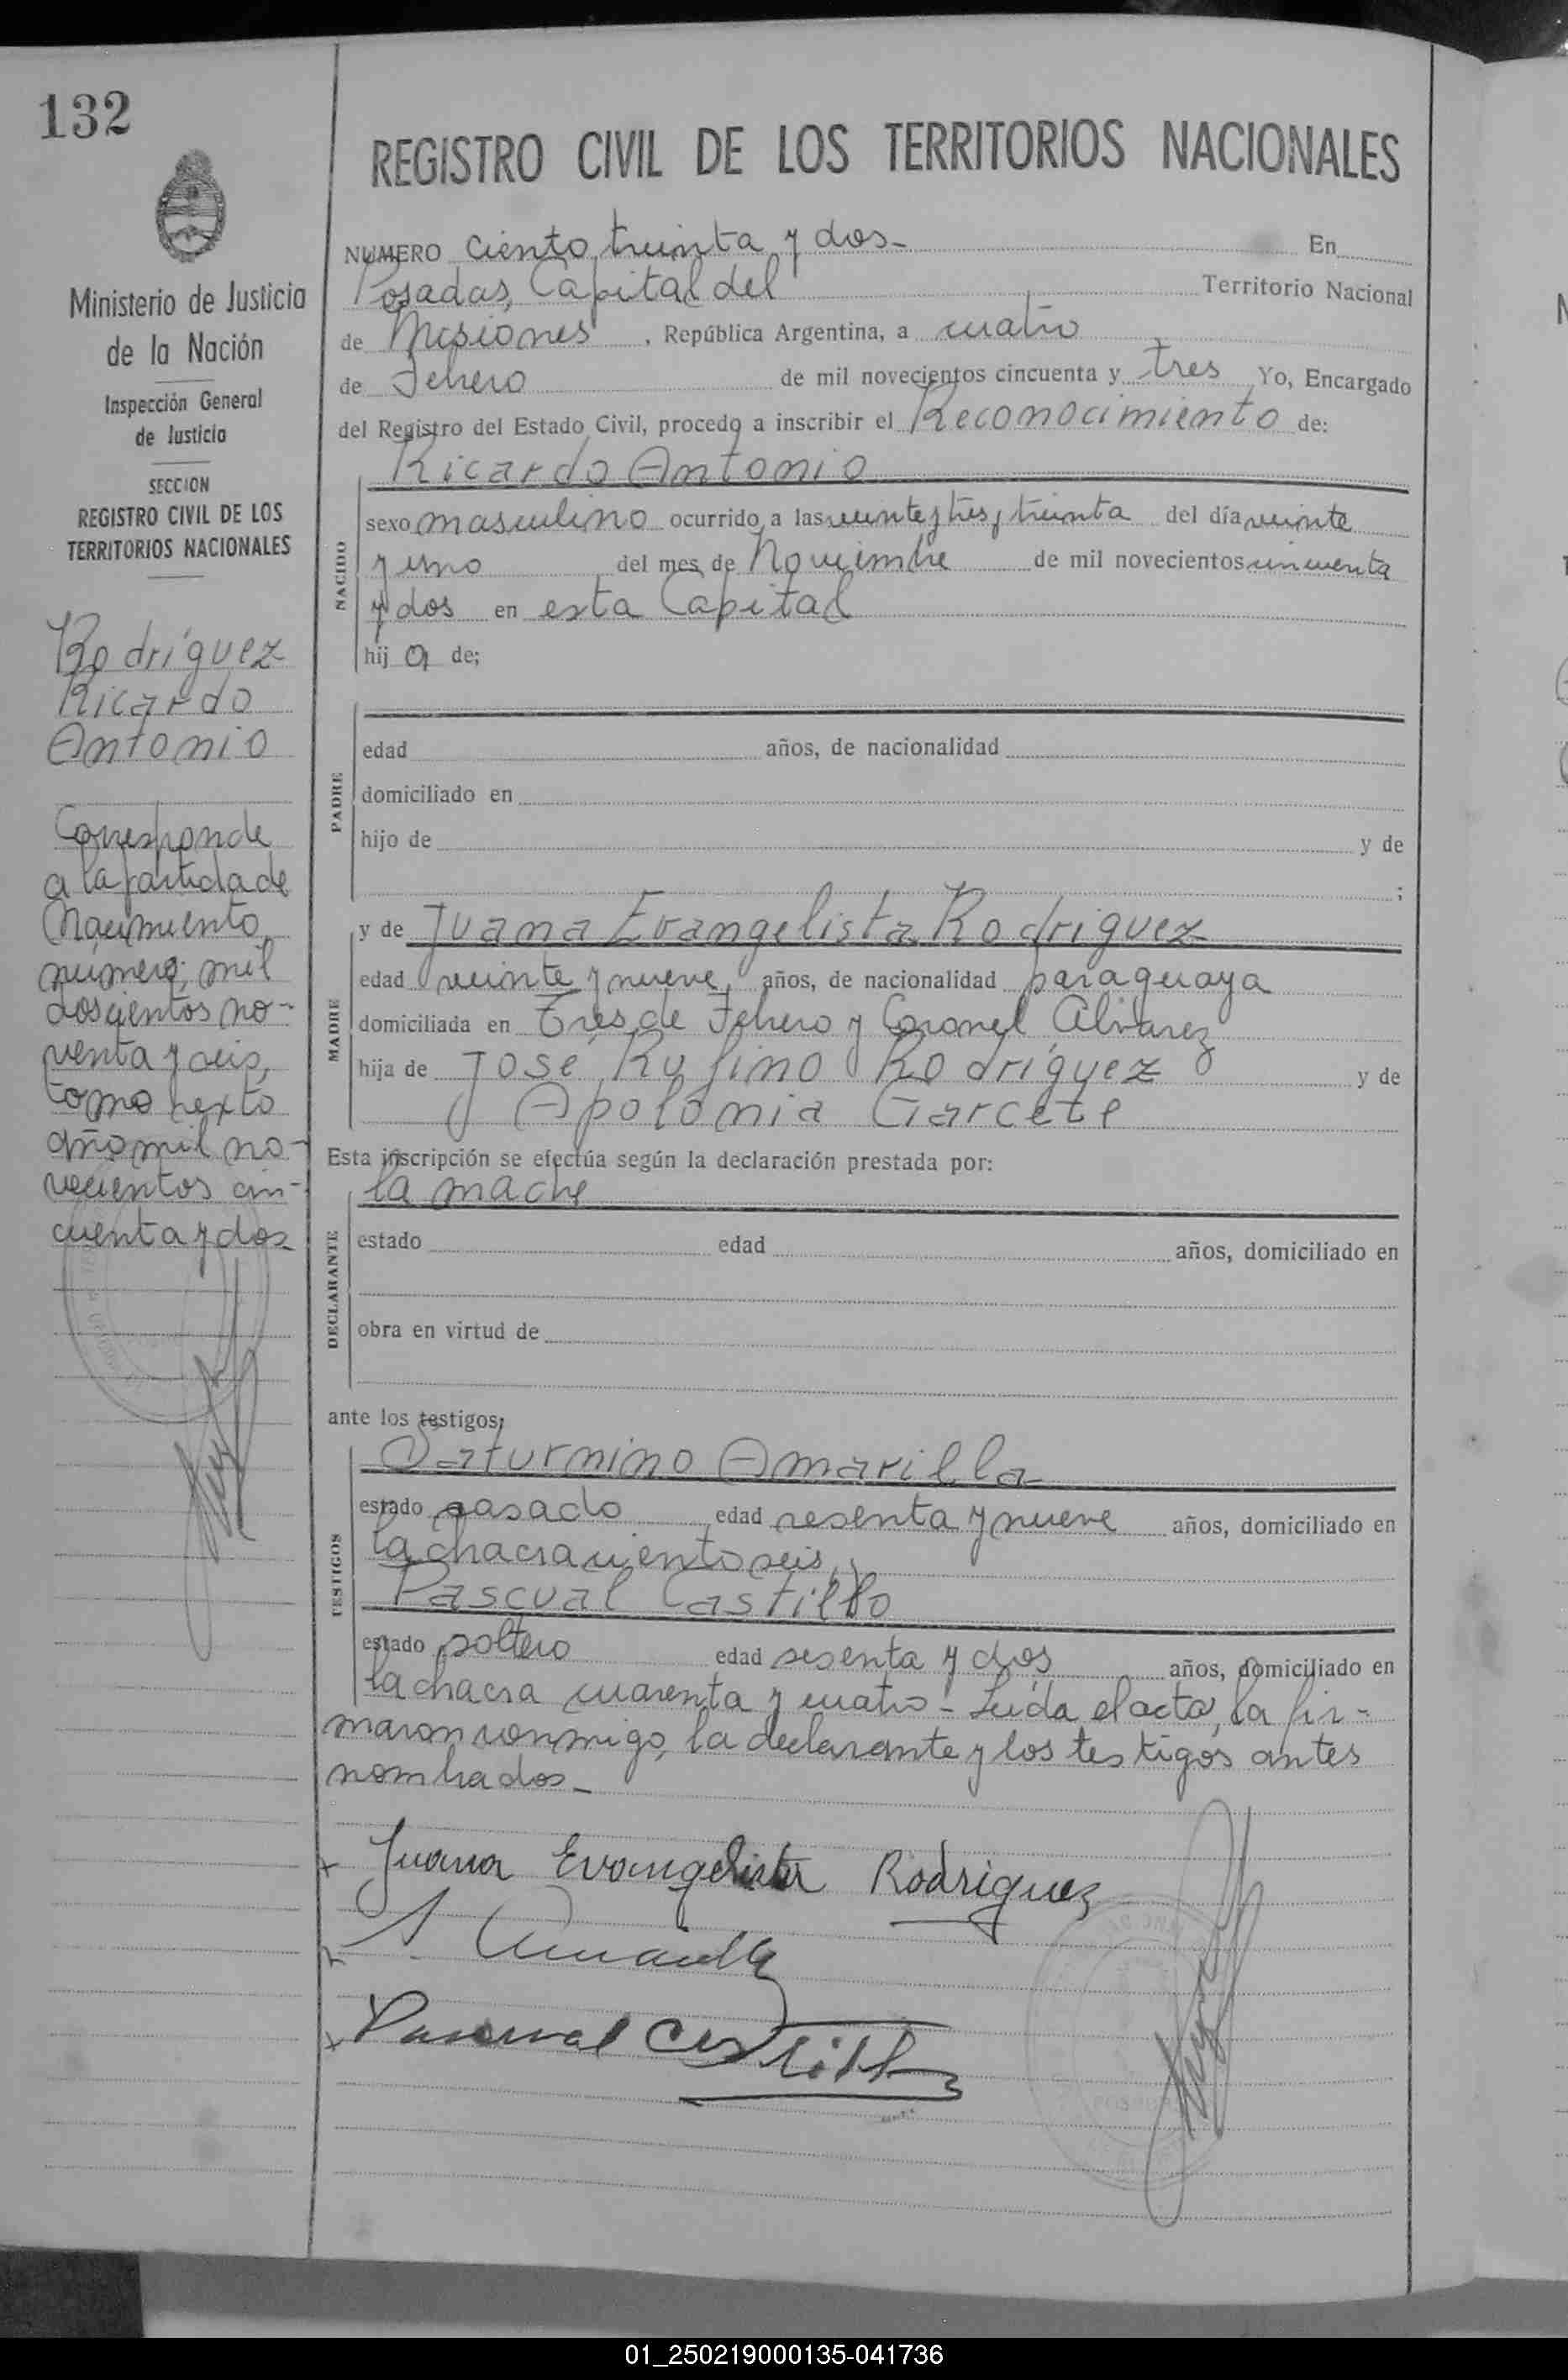 132
Ministerio de Justicia
de la Nación
Inspección General
de Justicia
SECCION
REGISTRO CIVIL DE LOS
TERRITORIOS NACIONALES
Rodríguez
Ricardo
Antonio
Corresponde
a la partida de
Nacimiento
número; mil
doscientos no-
venta y seis,
tomo sexto
año mil no-
vecientos cin-
cuenta y dos
REGISTRO CIVIL DE LOS TERRITORIOS NACIONALES
NUMERO ciento treinta y dos- En
Posadas, Capital del Territorio Nacional
de Misiones, República Argentina, a cuatro
de Febrero de mil novecientos cincuenta y tres Yo, Encargado
del Registro del Estado Civil, procedo a inscribir el Reconocimiento de:
Ricardo Antonio
NACIDO
sexo masculino ocurrido a las veinte y tres y treinta del día veinte
y uno del mes de Noviembre de mil novecientos cincuenta
y dos en esta Capital
hij o de;
PADRE
edad años, de nacionalidad
domiciliado en
hijo de y de
;
MADRE
y de Juana Evangelista Rodriguez
edad veinte y nueve años, de nacionalidad paraguaya
domiciliada en Tres de Febrero y Coronel Alvarez
hija de José Rufino Rodríguez y de
Apolonia Garcete
Esta inscripción se efectúa según la declaración prestada por:
la madre
DECLARANTE
estado edad años, domiciliado en
obra en virtud de
ante los testigos;
Saturnino Amarilla
TESTIGOS
estado casado edad sesenta y nueve años, domiciliado en
la chacra ciento seis, y
Pascual Castillo
estado soltero edad sesenta y dos años, domiciliado en
la chacra cuarenta y cuatro - Leída el acta, la fir-
maron conmigo, la declarante y los testigos antes
nombrados-
Juana Evangelista Rodriguez
S. Amarilla
Pascual Castillo
01_250219000135-041736